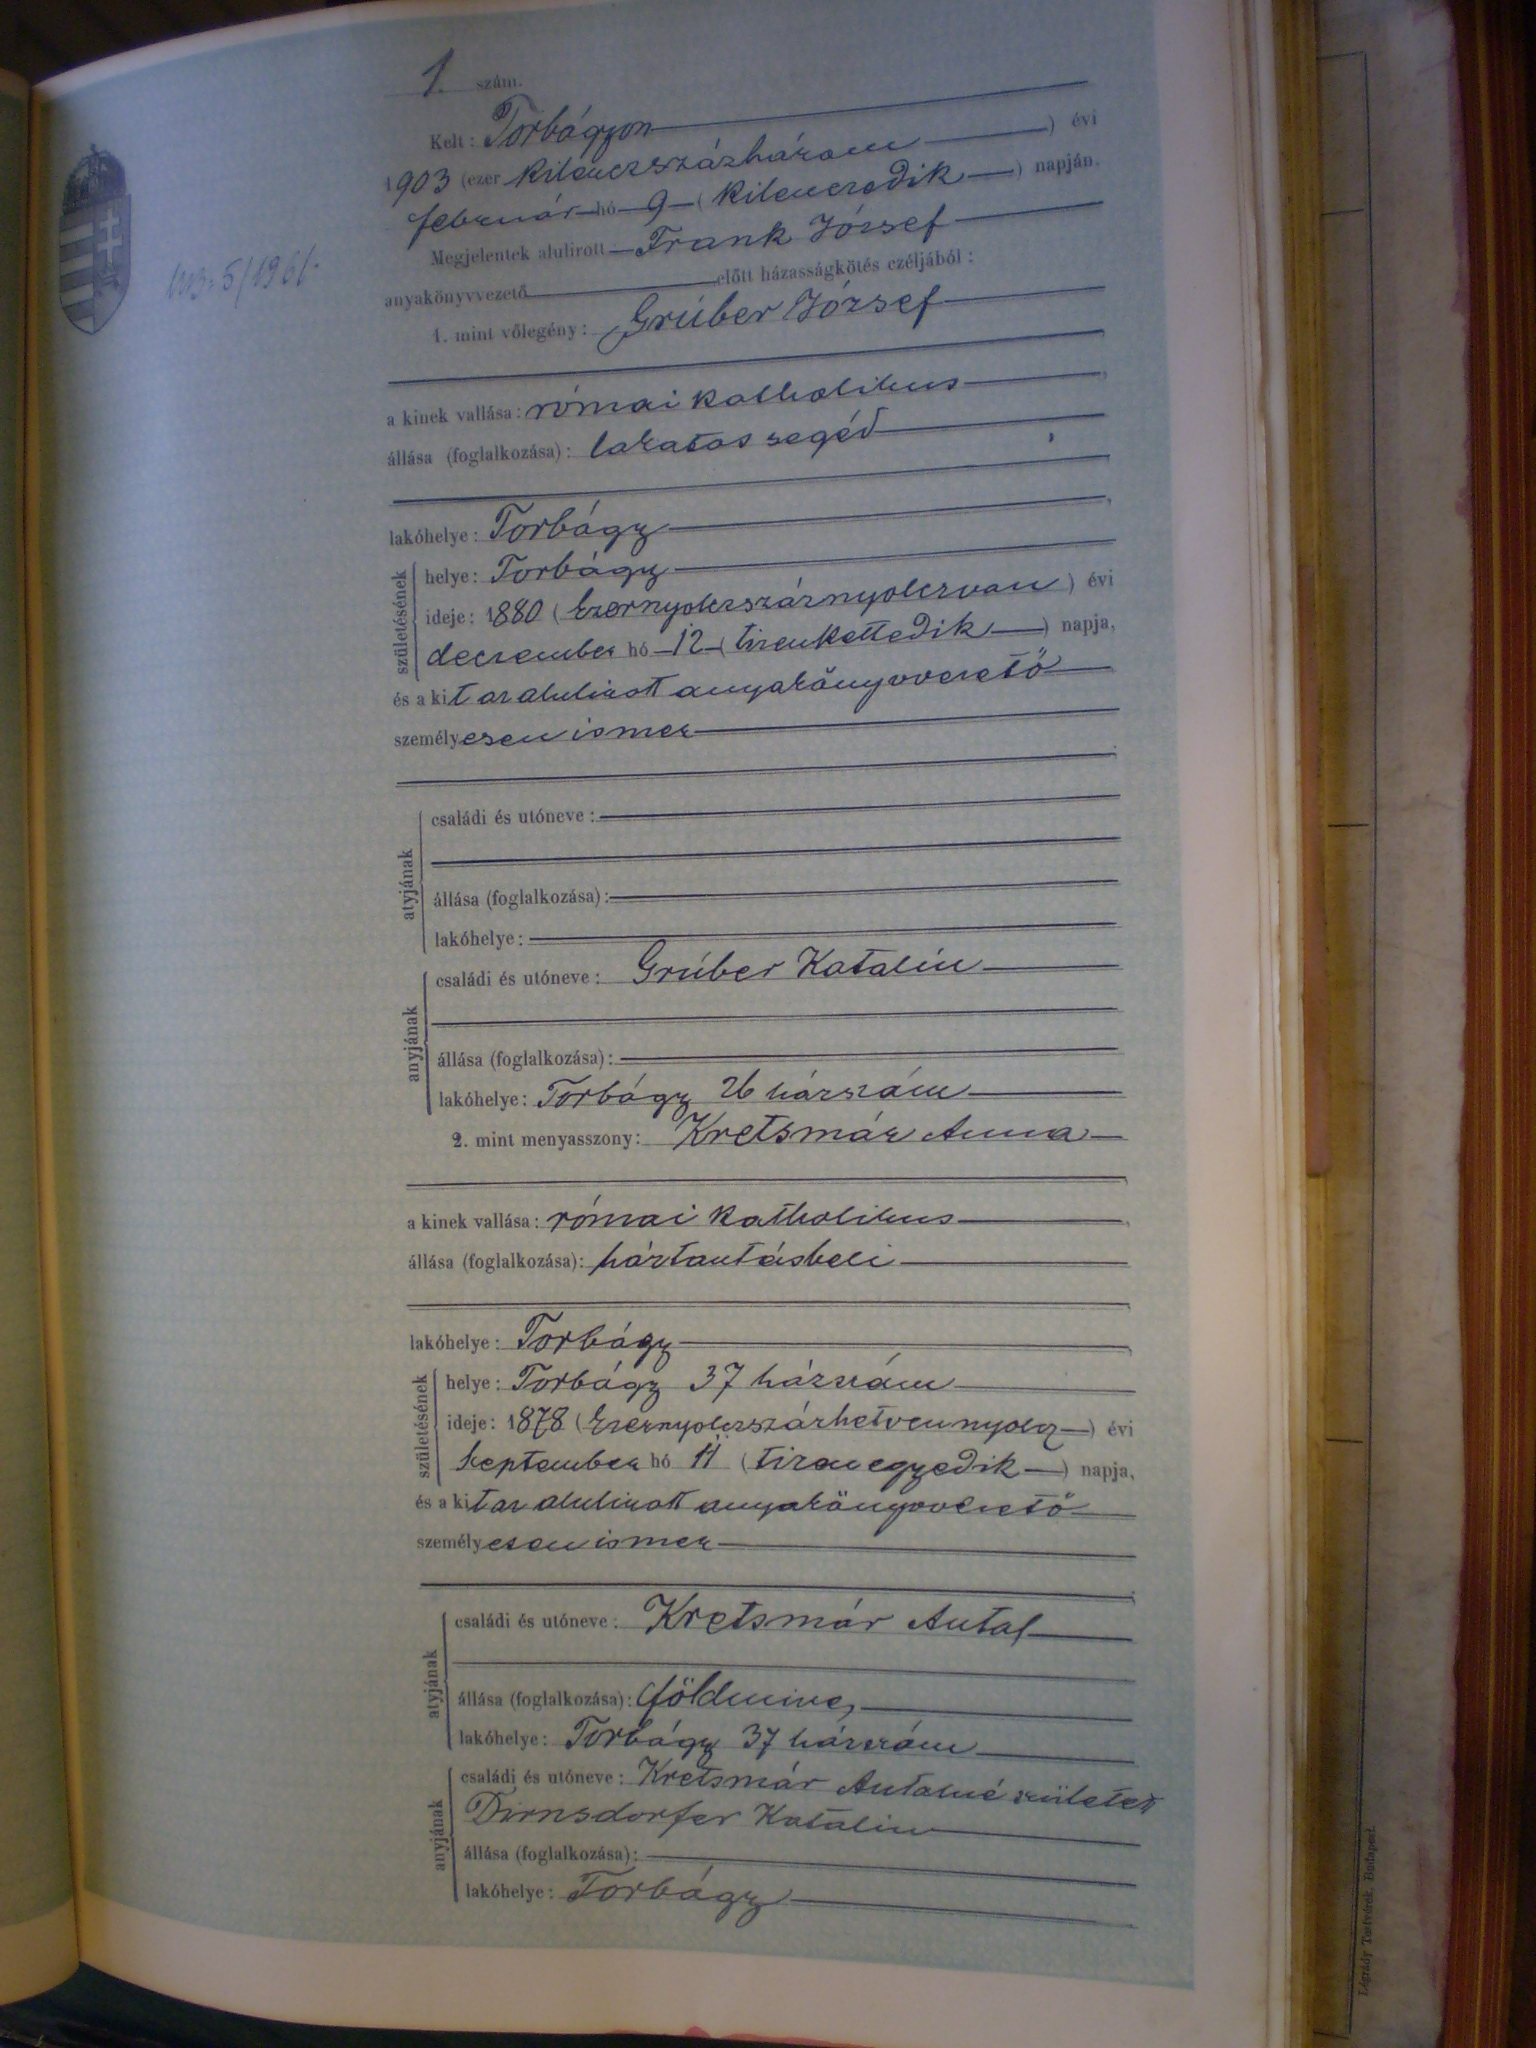 1. szám.
Kelt: Torbágyon
1903 (ezer kilenczszázhárom) évi
február hó 9 (kilenczedik) napján.
Megjelentek alulirott Frank József
anyakönyvvezető előtt házasságkötés czéljából:
1. mint vőlegény: Grúber József
a kinek vallása: római katholikus
állása (foglalkozása): lakatos segéd
lakóhelye: Torbágy
születésének
helye: Torbágy
ideje: 1880 (Ezernyolczszáznyolczvan) évi
deczember hó 12 (tizenkettedik) napja,
és a kit az alulirott anyakönyvvezető
személyesen ismer
atyjának
családi és utóneve:
állása (foglalkozása):
lakóhelye:
anyjának
családi és utóneve: Grúber Katalin
állása (foglalkozása):
lakóhelye: Torbágy 26 házszám
2. mint menyasszony: Kretsmár Anna
a kinek vallása: római katholikus
állása (foglalkozása): háztartásbeli
lakóhelye: Torbágy
születésének
helye: Torbágy 37 házszám
ideje: 1878 (Ezernyolczszázhetvennyolcz) évi
szeptember hó 11 (tizenegyedik) napja,
és a kit az alulirott anyakönyvvezető
személyesen ismer
atyjának
családi és utóneve: Kretsmár Antal
állása (foglalkozása): földmives
lakóhelye: Torbágy 37 házszám
anyjának
családi és utóneve: Kretsmár Antalné született
Dirnsdorfer Katalin
állása (foglalkozása):
lakóhelye: Torbágy
5/1961.
Légrády Testvérek, Budapest.